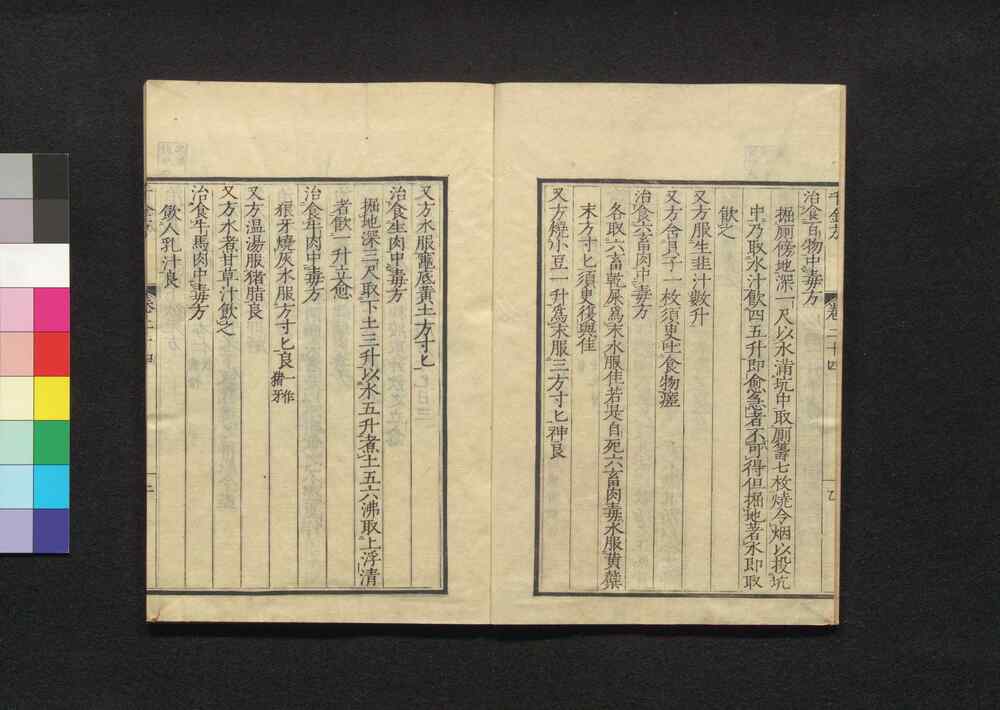 千金方 卷二十四
治食百物中毒方
掘廁傍地深一尺以水滿坑中取廁籌七枚燒令烟以投坑
中乃取水汁飲四五升即愈急者不可得但掘地著水即取
飲之
又方服生韭汁數升
又方含貝子一枚須臾吐食物瘥
治食六畜肉中毒方
各取六畜乾屎爲末水服佳若是自死六畜肉毒水服黃蘗
末方寸匕須臾復與佳
又方燒小豆一升爲末服三方寸匕神良
又方水服竈底黃土方寸匕
治食生肉中毒方
掘地深三尺取下土三升以水五升煮土五六沸取上浮清
者飲一升立愈
治食牛肉中毒方
狼牙燒灰水服方寸匕良一作猪牙
又方温湯服猪脂良
又方水煮甘草汁飲之
治食牛馬肉中毒方
飲人乳汁良